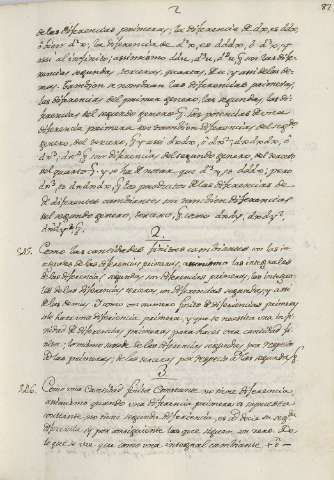 2 87
de las diferencias primeras, la diferencia de dx, es ddx,
ó bien d²x, la diferencia de d²x, es dddx, ó d³x, y
assi al infinito, assimismo ddu, d³u, d⁴u &. son las dife-
rencias segundas, terceras, quartas, de u, y assi de las de-
mas. tambien se nombran las diferencias primeras,
las diferencias del primer genero, las segundas, las di-
ferencias del segundo genero &. las potencias de una
diferencia primera son tambien diferencias del segdo
genero, del tercero, &. y assi dxdx, ó dx²; dxdxdx, ó
dx³; dx⁴ &. son diferencias del segundo genero, del tercero
del quarto &. y se ha de notar, que d³x, es dddx; pero
dx³, es dxdxdx, los productos de las diferencias de
de diferentes cambiantes son tambien diferencias
del segundo genero, tercero, &. como dxdy, dxdy²,
2.
525. Como las cantidades finitas cambiantes son las in-
tegrales de las diferencias primeras, las integrales
de las diferencias segundas son diferencias primeras, las integra-
les de las diferencias terceras son diferencias segundas, y assi
de las demas. Y como un numero finito de diferencias primeras
no hace una diferencia primera, y que se necesita una in-
finidad de diferencias primeras para hacer una cantidad fi-
nita; lo mismo sucede de las diferencias segundas por respecto
de las primeras; de las terceras por respecto á las segundas &
3
526. Como una Cantidad finita Constante no tiene diferencia
assimismo quando una diferencia primera se supone
constante no tiene segunda diferencia, es á decir su segda
diferencia y por consiguiente las que siguen son zero. De
lo que se ve que como una integral cambiante + ó −